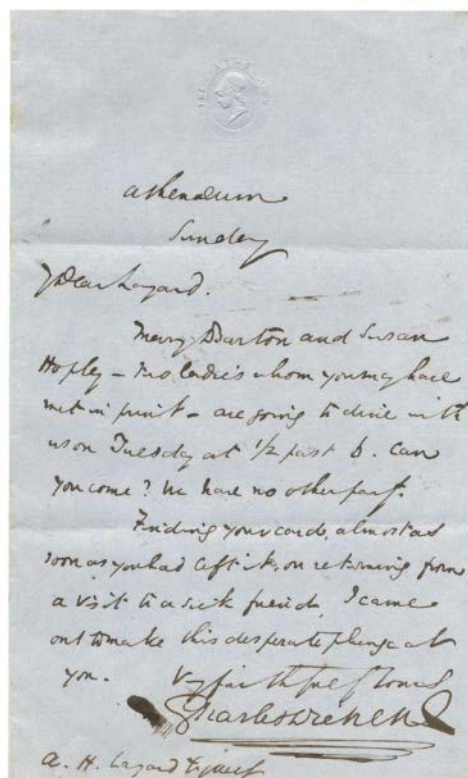 THE ATHENÆUM
Athenæum
Sunday
My Dear Layard.
Mary Barton and Susan
Hopley – two ladies whom you may have
met in print – are going to dine with
us on Tuesday at 1/2 past 6. Can
you come? We have no other party.
Finding your card, almost as
soon as you had left it, on returning from
a visit to a sick friend, I came
out to make this desperate plunge at
you.
Vy faithfully Yours
Charles Dickens
A. H. Layard Esquire